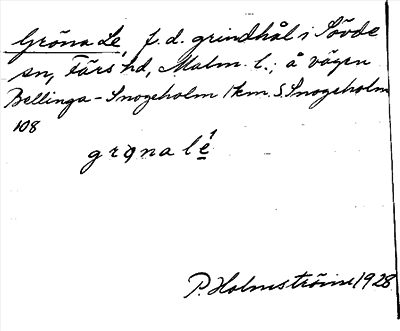 Gröna Le, f.d. grindhål i Sövde
sn, Färs hd, Malm. l.; å vägen
Bellinga - Snogeholm 1 km. S Snogeholm
108
grǫna lé
P. Holmström 1928